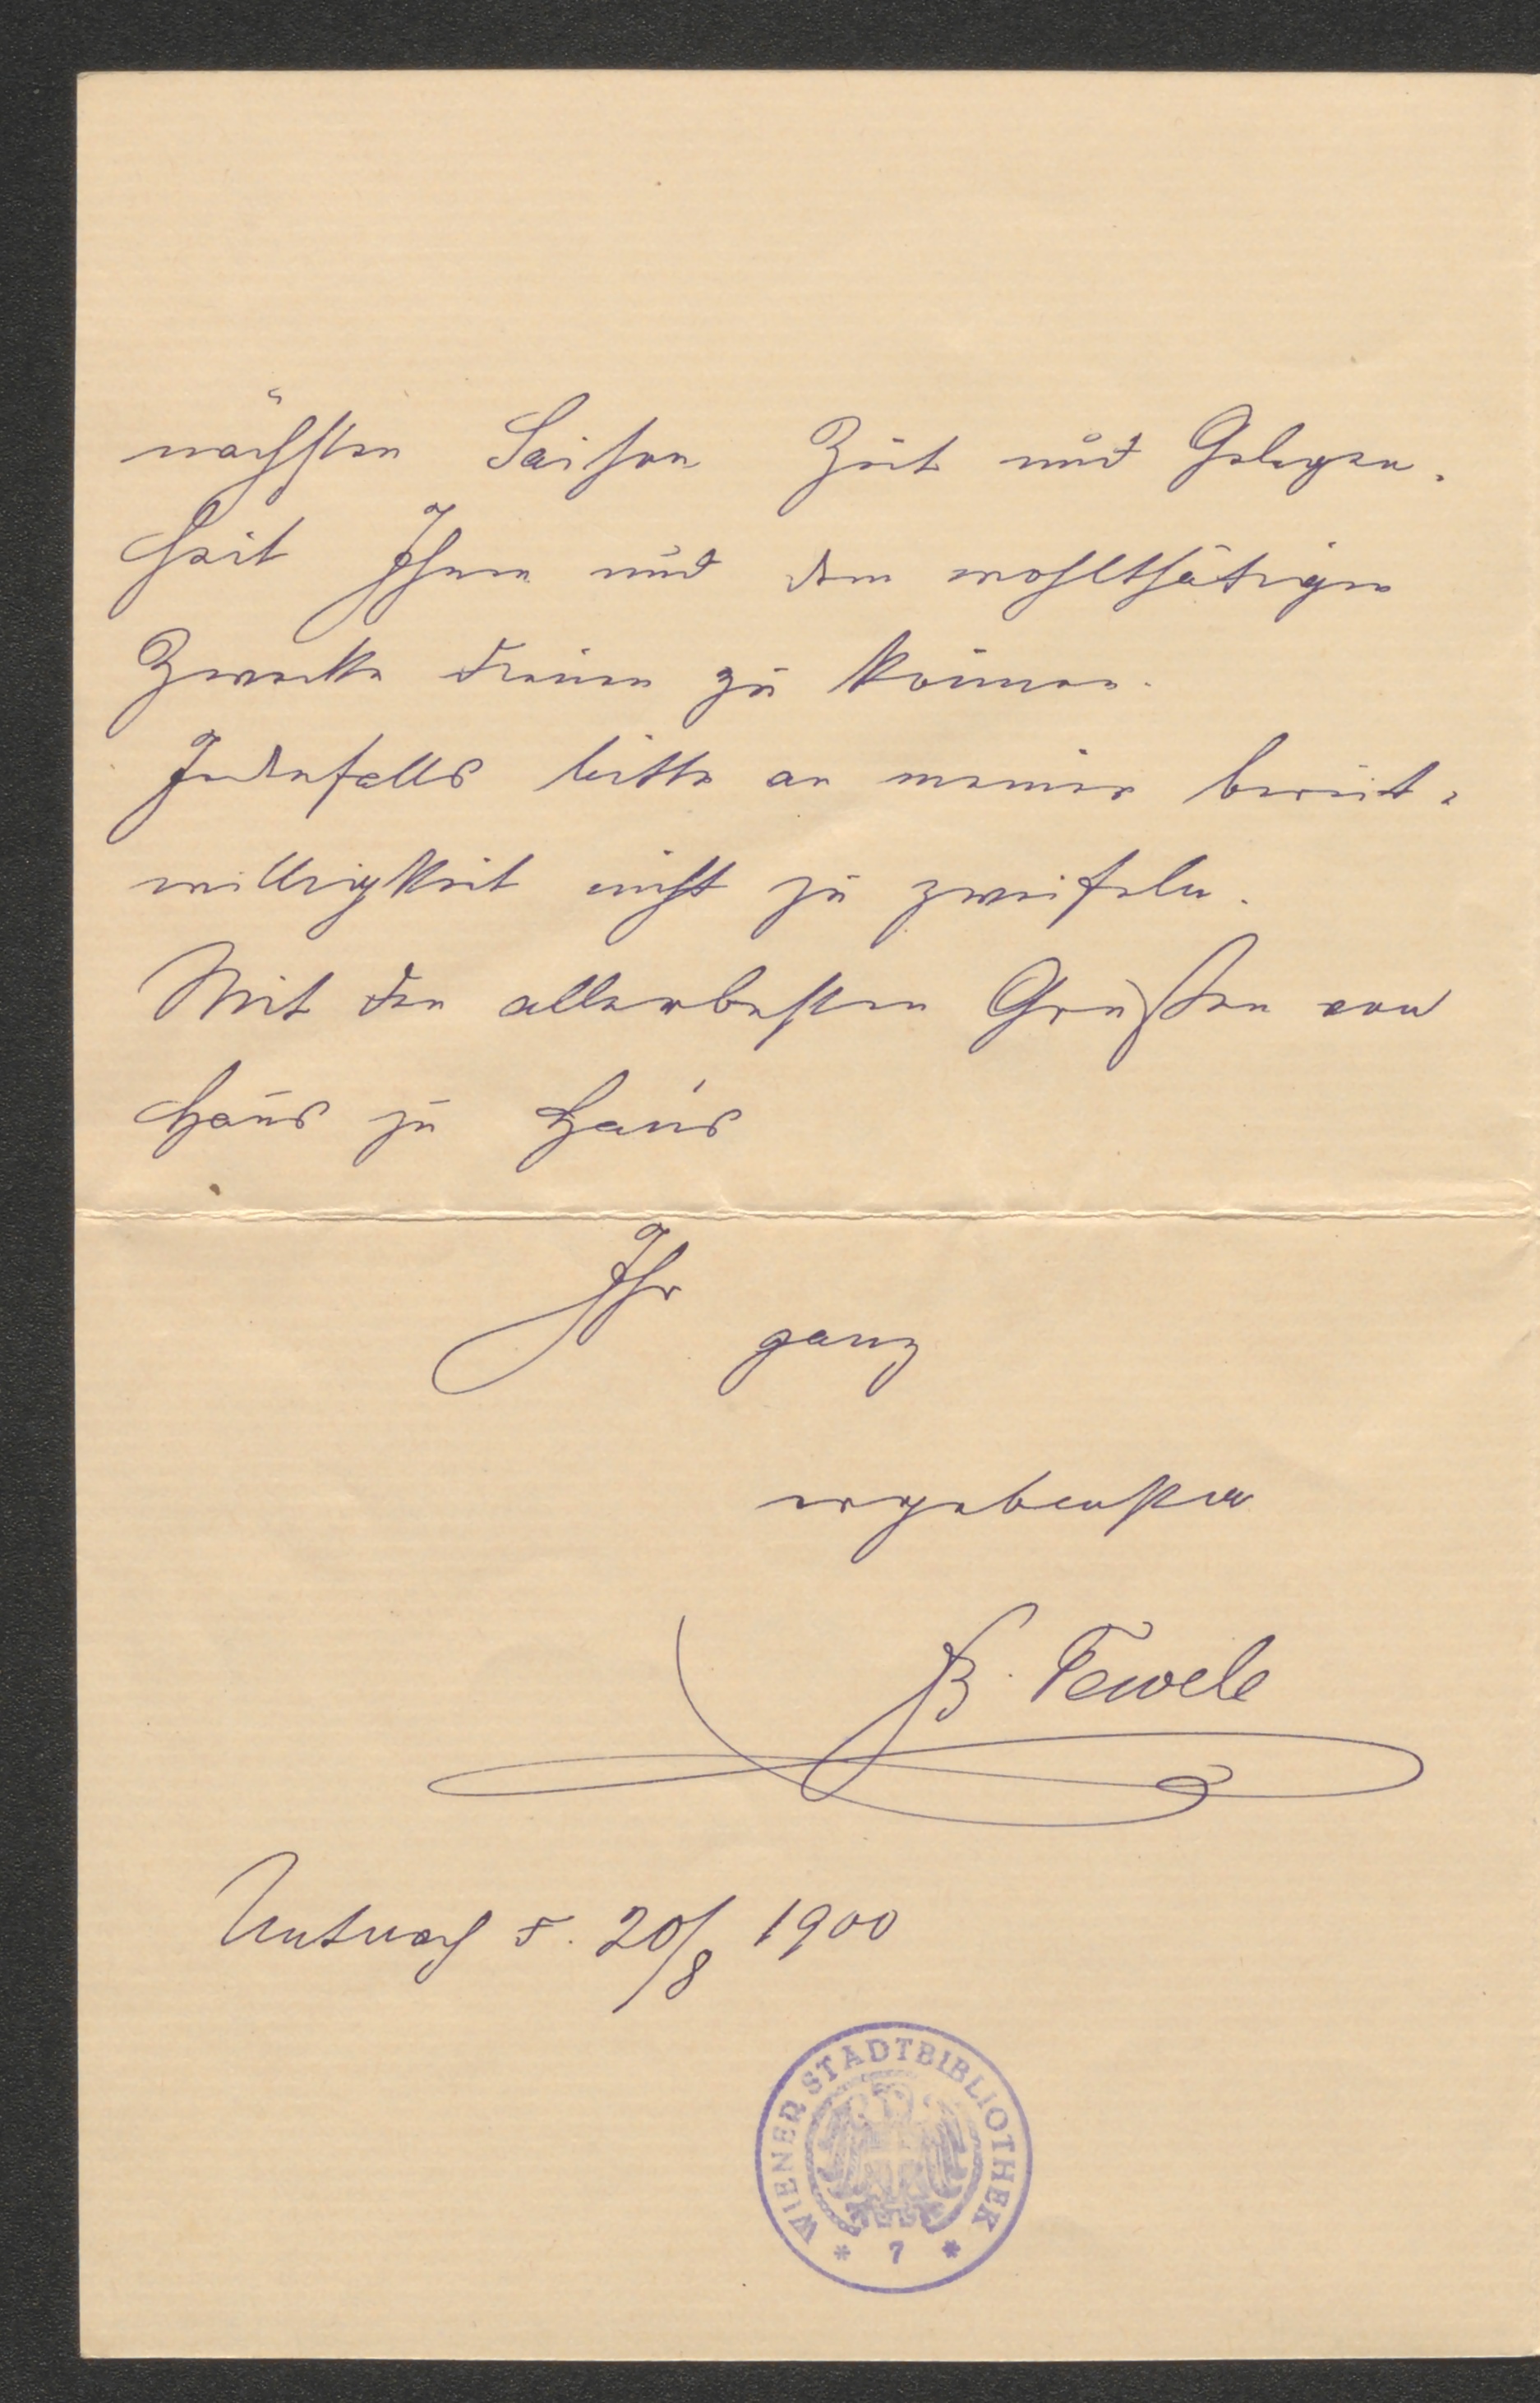 nächsten Saison Zeit und Gelegen-
heit Ihnen und dem wohlthätigen
Zwecke dienen zu können.
Jedenfalls bitte an meiner bereit-
willigkeit nicht zu zweifeln.
Mit den allerbesten Grüßen von
Haus zu Haus
Ihr
ganz
ergebenster
F. Tewele
Unterach d. 20/8 1900
WIENER STADTBIBLIOTHEK
* 7 *